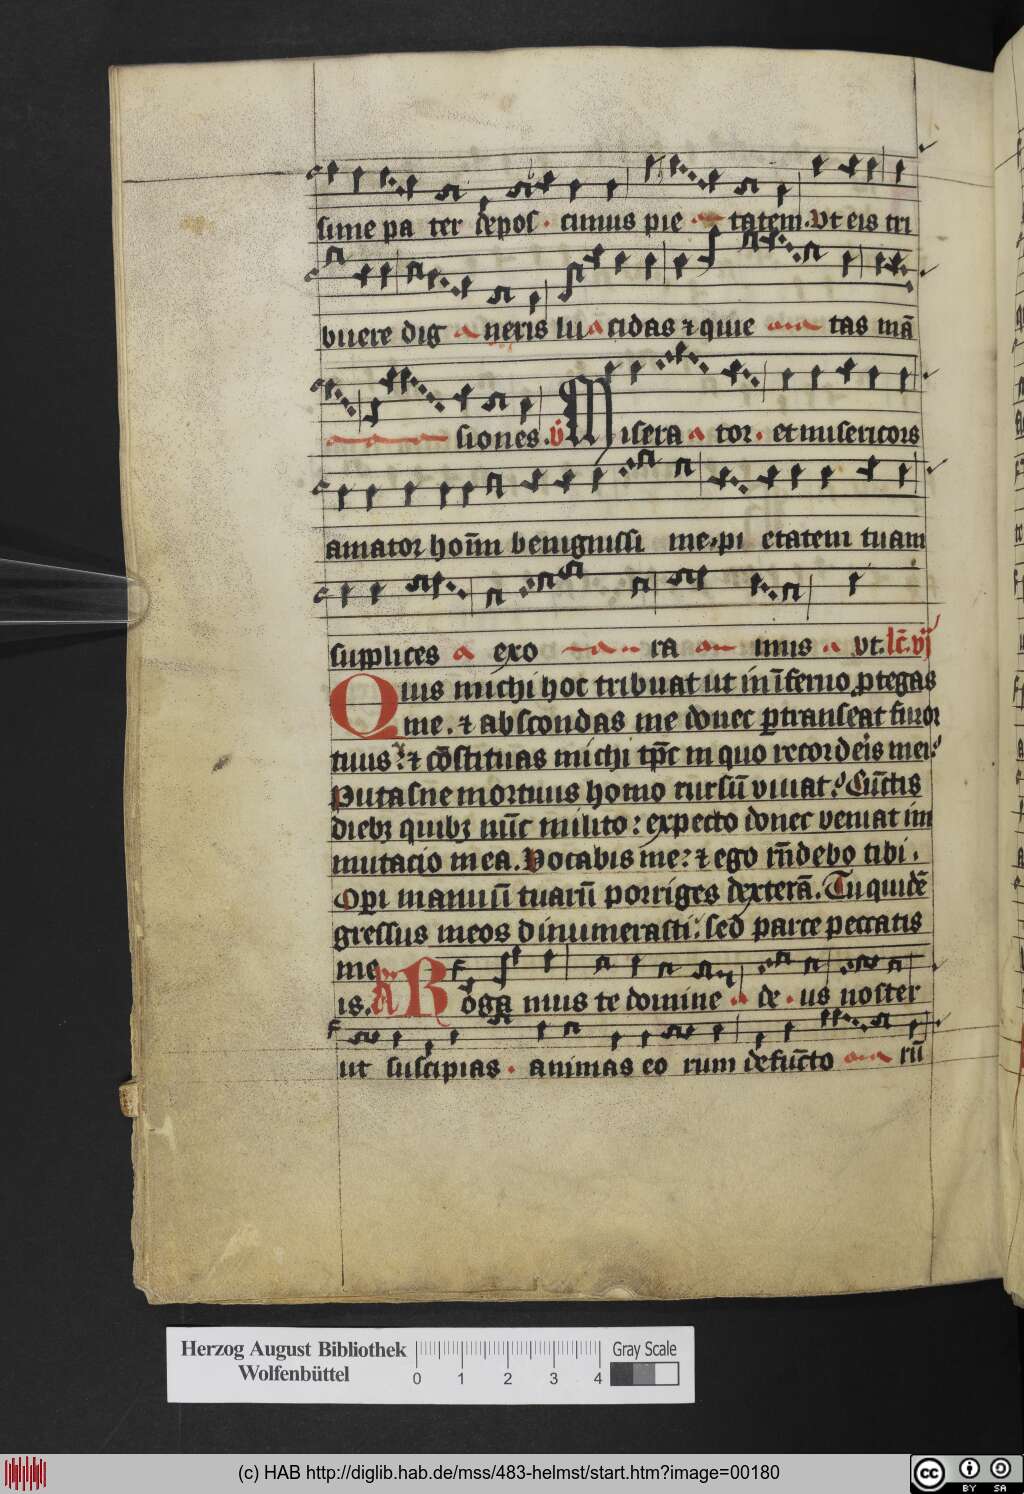 sime pa ter depos cimus pie tatem. Vt eis tri
buere dig neris lu cidas ⁊ quie tas mā
siones. v̇ Misera tor. et misericors
amator hoı̄m benignissi me pi etatem tuam
supplices exo ra mus vt. lc̄. vij
Quis michi hoc tribuat ut in īferno ꝓtegas
me. ⁊ abscondas me donec ꝑtranseat furor
tuus: ⁊ cōstituas michi tp̄c in quo recorderis mei:
Putasne mortuus homo rursū viuat: Cūctis
diebꝫ quibꝫ nūc milito: expecto donec veniat im
mutacio mea. Vocabis me: ⁊ ego rn̄debo tibi.
Oꝑi manuū tuarū porriges dexterā. Tu quidē
gressus meos dinumerasti: sed parce peccatis
me
is. R Roga mus te domine de us noster
ut suscipias animas eo rum defūcto rū
Herzog August Bibliothek
Wolfenbüttel
0 1 2 3 4
Gray Scale
(c) HAB http://diglib.hab.de/mss/483-helmst/start.htm?image=00180
cc BY SA